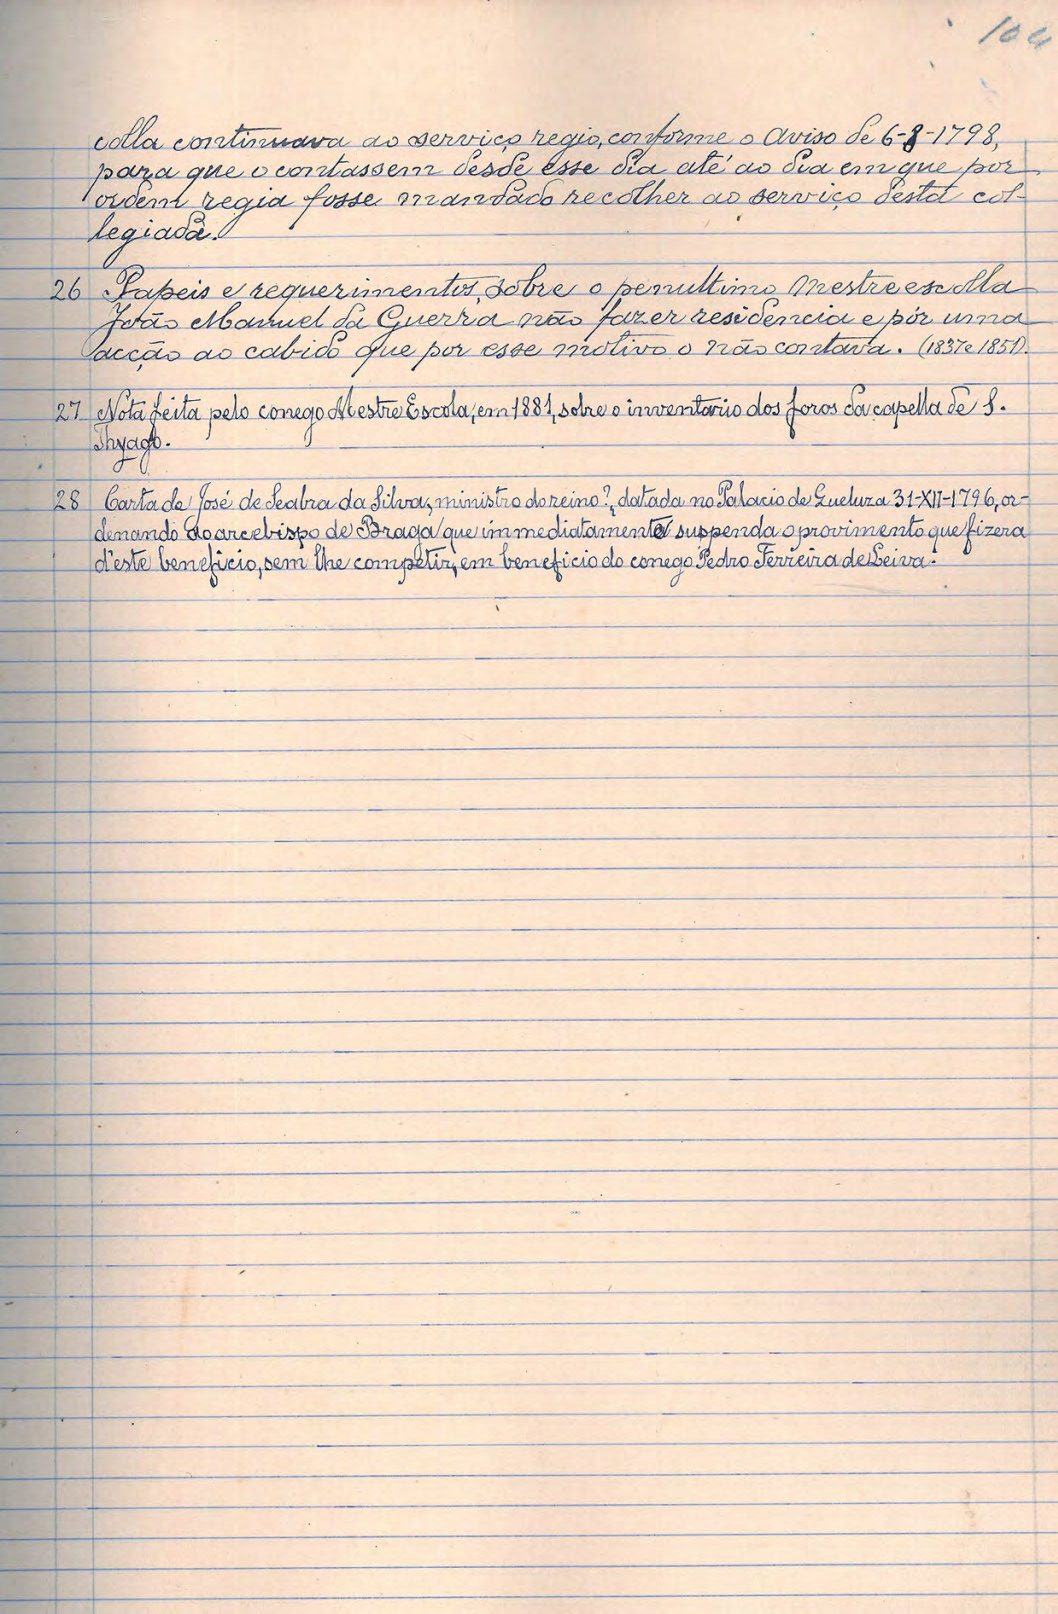 104
colla continuava ao serviço regio, conforme o Aviso de 6-8-1798,
para que o contassem desde esse dia até ao dia em que por
ordem regia fosse mandado recolher ao serviço desta col-
legiada.
26 Papeis e requerimentos, sobre o penultimo Mestre escolla
João Manuel da Guerra não fazer residencia e pôr uma
acção ao cabido que por esse motivo o não contava. (1837 e 1851).
27 Nota feita pelo conego Mestre Escola, em 1881, sobre o inventario dos foros da capella de S.
Thyago.
28 Carta de José de Seabra da Silva, ministro do reino?, datada no Palacio de Queluz a 31-XII-1796, or-
denando ao arcebispo de Braga que immediatamente suspenda o provimento que fizera
d'este beneficio, sem lhe competir, em beneficio do conego Pedro Ferreira de Seiva.